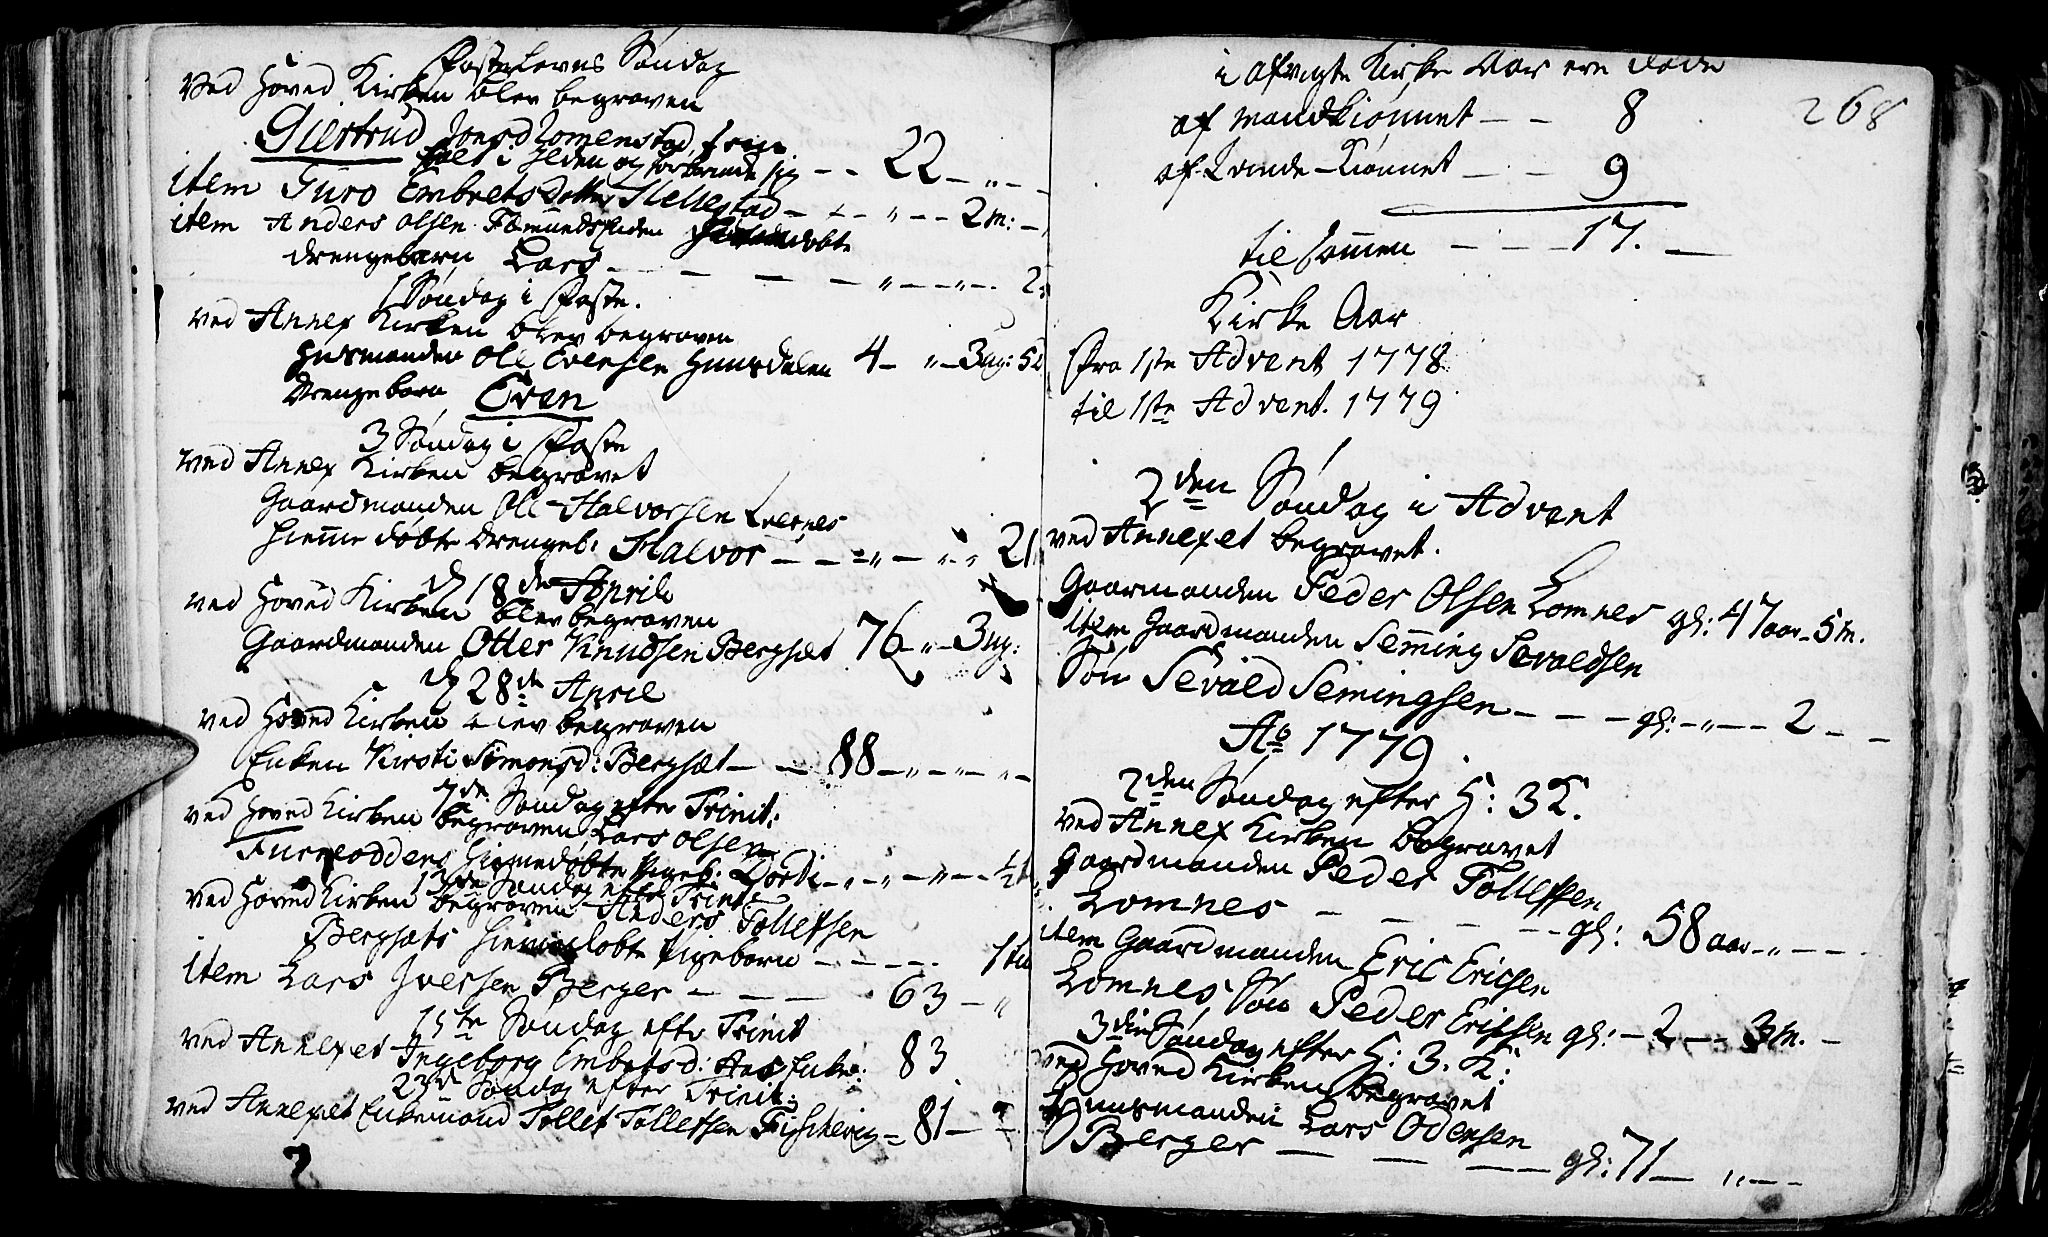 Fastelavns Søndag
Ved Hoved Kirken blev begraven
Giertrud Jonsd. Lomenstad, som
falt i Ilden og forbrende sig -- 22 - „ - -
item Guro Embretsdatter Hellestad - - „ - - 2 M: -
item Anders Olsen Fæmundssiden døbte
drengebarn Lars - - - - „ - - „ - - 2
1 Søndag i Faste.
ved Annex Kirken blev begraven
Husmanden Ole Evensen Huusdalen 4 - „ - 3 ug: 5 d
Drengebarn Even
3 Søndag i Faste
ved Annex Kirken begravet
Gaardmanden Ole Halvorsen Qvernes
hiemme døbte drengeb: Halvor - - - „ - „ - „ 21
d 18de April
ved Hoved Kirken blev begraven
Gaardmanden Otter Knudsen Bergsæt 76 - „ - 3 ug:
d 28de April
ved Hoved Kirken blev begraven
Enken Kirsti Simonsd: Bergsæt - - 88 - „ - „ - -
7de Søndag efter Trinit:
ved Hoved Kirken begraven Lars Olsen
Furuoddens hiemedøbte Pigeb: Dorti - „ - „ - „ - - ½
13de Søndag efter Trinit:
ved Hoved Kirken begraven Anders Tollefsen
Bergsæts hiemedøbte Pigebarn - - - - 1
item Lars Iversen Berger - - - 63 - „
15te Søndag efter Trinit
ved Annexet Ingeborg Embretsd: Aas Enke: 83
23de Søndag efter Trinit:
ved Annexet Enkemand Tollef Tollefsen Fischevig = 81 -
268
i afvigte Kirke Aar ere døde
af Mandkiønnet - - 8
af Qvinde-Kiønnet - - 9
til sammen - - - 17. -
Kirke Aar
Fra 1ste Advent 1778
til 1ste Advent. 1779
2den Søndag i Advent
ved Annexet begravet.
Gaarmanden Peder Olsen Lomnes gl: 47 aar - 5 M.
item Gaardmanden Semming Sevaldsen
Søn Sevald Semingsen - - - gl: - „ - - 2 - -
Ao 1779.
2den Søndag efter H: 3 K.
ved Annex Kirken begravet
Gaardmanden Peder Tollefsen
Lomnes - - - - - gl: 58 aar - „ - - -
item Gaardmanden Eric Ericsen
Lomnes Søn Peder Ericsen gl: - 2 - - 3 M. -
3die Søndag efter H: 3. K:
ved Hoved Kirken begravet
Huusmanden Lars Odensen
Berger - - - - gl: 71 - „ - - -